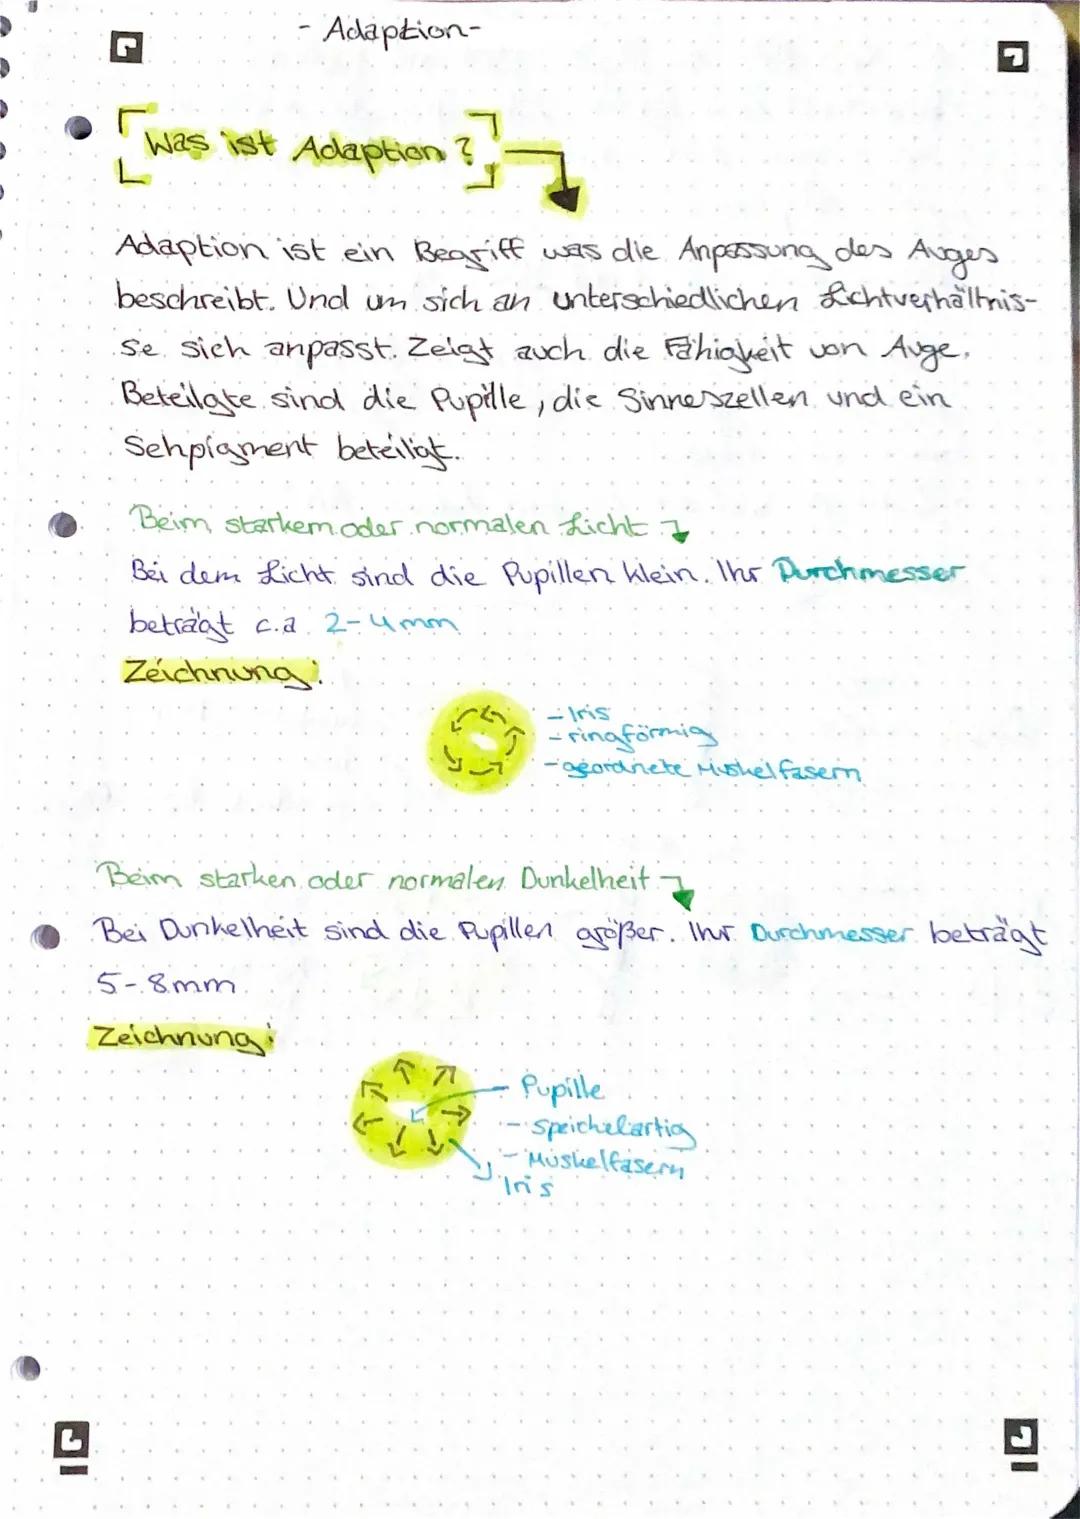 - Adaption-
Was ist Adaption?
Adaption ist ein Begriff was die Anpassung des Auges
beschreibt. Und um sich an unterschiedlichen Lichtverhältnis-
se sich anpasst. Zeigt auch die Fähigkeit von Auge.
Beteilgte sind die Pupille, die Sinneszellen und ein
Sehpigment beteiligt.
Beim starkem oder normalen Licht
Bei dem Licht sind die Pupillen klein. Ihr Durchmesser
beträgt c.a 2-4mm
Zeichnung:
- Iris
- ringförmig
- geordnete Muskelfasern
Beim starken oder normalen Dunkelheit
Bei Dunkelheit sind die Pupillen größer. Ihr Durchmesser beträgt
5-8mm
Zeichnung:
Pupille
- speichelartig
- Muskelfasern
Iris